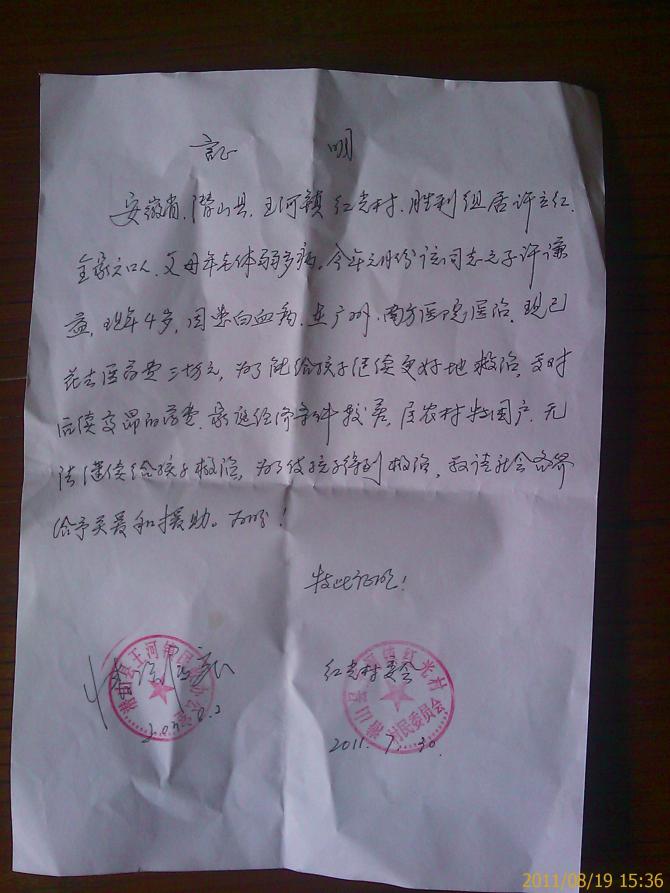 証 明
安徽省.潜山县.王河镇 红光村.胜利组居许立红.
全家六口人.父母年老体弱多病。今年元月份该同志之子许谦
益,现年4岁,因患白血病,在广州.南方医院医治.现已
花去医药费三十万元,为了能给孩子继续更好地救治,面对
后续高昂的药费.家庭经济条件较差.属农村特困户.无
法继续给孩子救治,为了使孩子得到救治,敬请社会各界
给予关爱和援助。
特此证明!
潜山县王河镇
红光村委会
镇红光村
潜山县
村民委员会
2011.7.30
2011/08/19 15:36